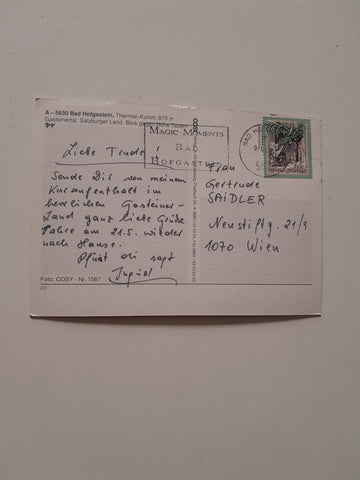 A - 5630 Bad Hofgastein, Thermal-Kurort, 870 m
Gasteinertal, Salzburger Land. Blick gegen Hohe Tauern
MAGIC MOMENTS
BAD
HOFGASTEIN
BAD
Liebe Trude!
Sende Dir von meinem
Kuraufenthalt im
herrlichen Gasteiner-
Land ganz liebe Grüße
Fahre am 21.5. wieder
nach Hause.
Pfiat di sagt
Foto: COSY - Nr. 1567
Frau
Gertrude
SAIDLER
Neustiftg. 21/9
1070 Wien